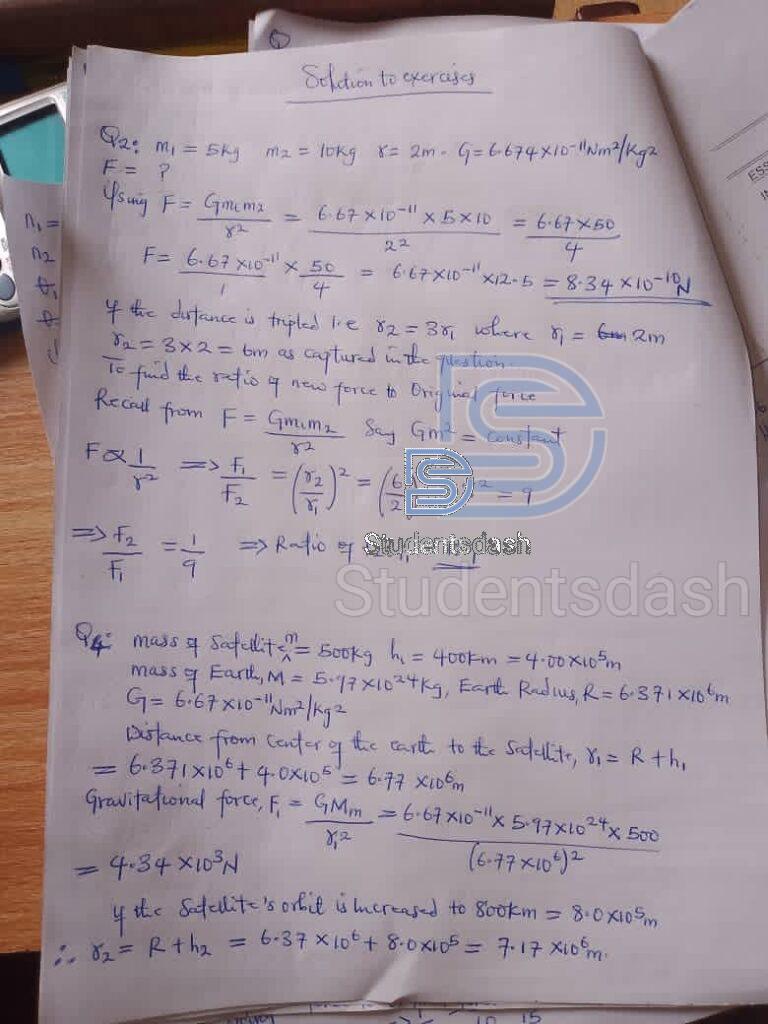 Solution to exercises
Q2: m₁ = 5kg m₂ = 10kg r = 2m - G = 6.674×10⁻¹¹Nm²/Kg²
F = ?
Using F = Gm₁m₂/r² = 6.67×10⁻¹¹×5×10/2² = 6.67×50/4
F = 6.67×10⁻¹¹/1 × 50/4 = 6.67×10⁻¹¹×12.5 = 8.34×10⁻¹⁰N
If the distance is tripled i.e r₂ = 3r₁ where r₁ = 2m
r₂ = 3×2 = 6m as captured in the question.
To find the ratio of new force to Original force
Recall from F = Gm₁m₂/r² Say Gm² = constant
F ∝ 1/r² => F₁/F₂ = (r₂/r₁)² = (6/2)² = 9
=> F₂/F₁ = 1/9 => Ratio of
Studentsdash
Studentsdash
Q4: mass of Satellite, m = 500kg h₁ = 400km = 4.00×10⁵m
mass of Earth, M = 5.97×10²⁴kg, Earth Radius, R = 6.371×10⁶m
G = 6.67×10⁻¹¹Nm²/kg²
Distance from center of the earth to the Satellite, r₁ = R + h₁
= 6.371×10⁶ + 4.0×10⁵ = 6.77×10⁶m
Gravitational force, F₁ = GMm/r₁² = 6.67×10⁻¹¹×5.97×10²⁴×500/(6.77×10⁶)²
= 4.34×10³N
If the Satellite's orbit is increased to 800km = 8.0×10⁵m
∴ r₂ = R + h₂ = 6.37×10⁶ + 8.0×10⁵ = 7.17×10⁶m.
n₁ =
n₂
ESS
IN
10 15